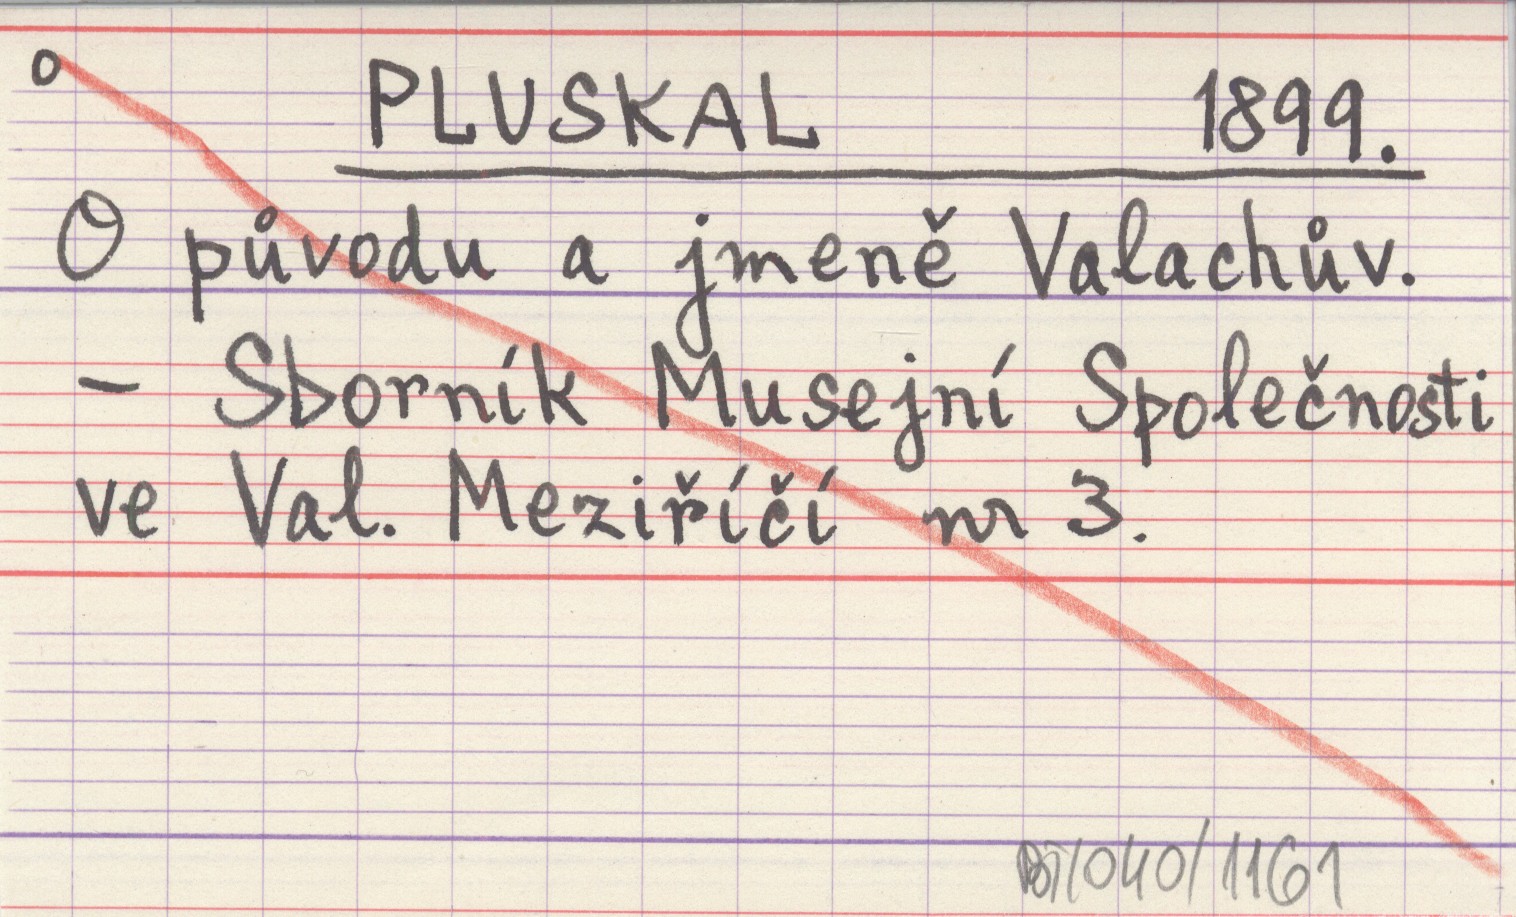 o PLUSKAL 1899.
O původu a jmeně Valachův.
- Sborník Musejní Společnosti
ve Val. Meziříčí nr 3.
/040/1161